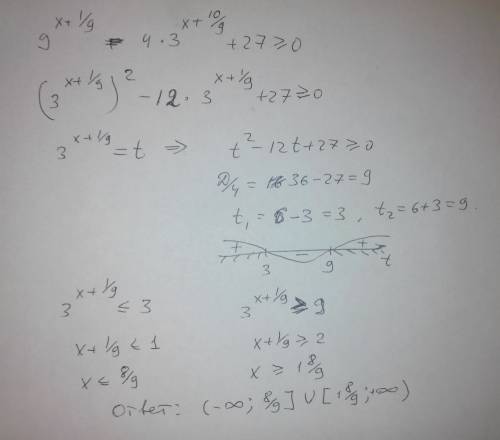 9^(x+1/9) - 4·3^(x+10/9) + 27 ≥ 0
(3^(x+1/9))² - 12·3^(x+1/9) + 27 ≥ 0
3^(x+1/9) = t ⇒ t² - 12t + 27 ≥ 0
D/4 = 36 - 27 = 9
t₁ = 6 - 3 = 3, t₂ = 6 + 3 = 9.
+ - +
3 9 t
3^(x+1/9) ≤ 3 3^(x+1/9) ≥ 9
x + 1/9 ≤ 1 x + 1/9 ≥ 2
x ≤ 8/9 x ≥ 1 8/9
Ответ: (-∞; 8/9] ∪ [1 8/9; +∞)